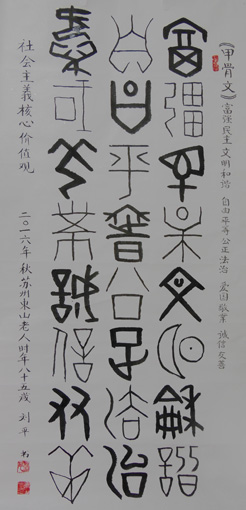 《甲骨文》富强民主文明和谐 自由平等公正法治 爱国敬業 诚信友善
富强民主文明和谐
自由平等公正法治
爱国敬業诚信友善
社会主義核心价值观 二〇一六年秋苏州東山老人时年八十五歲 刘平 书